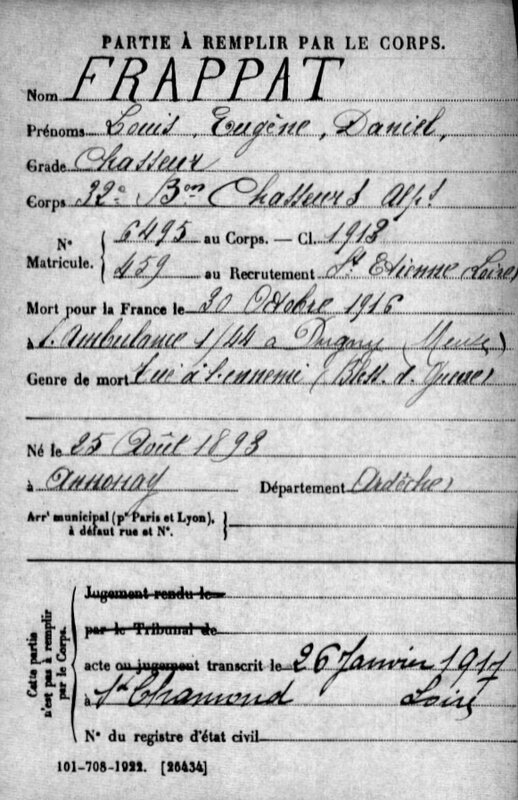 PARTIE À REMPLIR PAR LE CORPS.
Nom FRAPPAT
Prénoms Louis, Eugène, Daniel,
Grade Chasseur
Corps 32e Bon Chasseurs Alps
N° Matricule. { 6495 au Corps. — Cl. 1913
459 au Recrutement St Etienne (Loire)
Mort pour la France le 30 Octobre 1916
à l'Ambulance 1/44 a Dugny (Meuse)
Genre de mort tué à l'ennemi (Bless. d. Guerre)
Né le 25 Août 1893
à Annonay Département Ardèche
Arrt municipal (pr Paris et Lyon), à défaut rue et N°. }
Cette partie n'est pas à remplir par le Corps. {
Jugement rendu le
par le Tribunal de
acte ou jugement transcrit le 26 Janvier 1917
à St Chamond Loire
N° du registre d'état civil
101-708-1922. [26434]